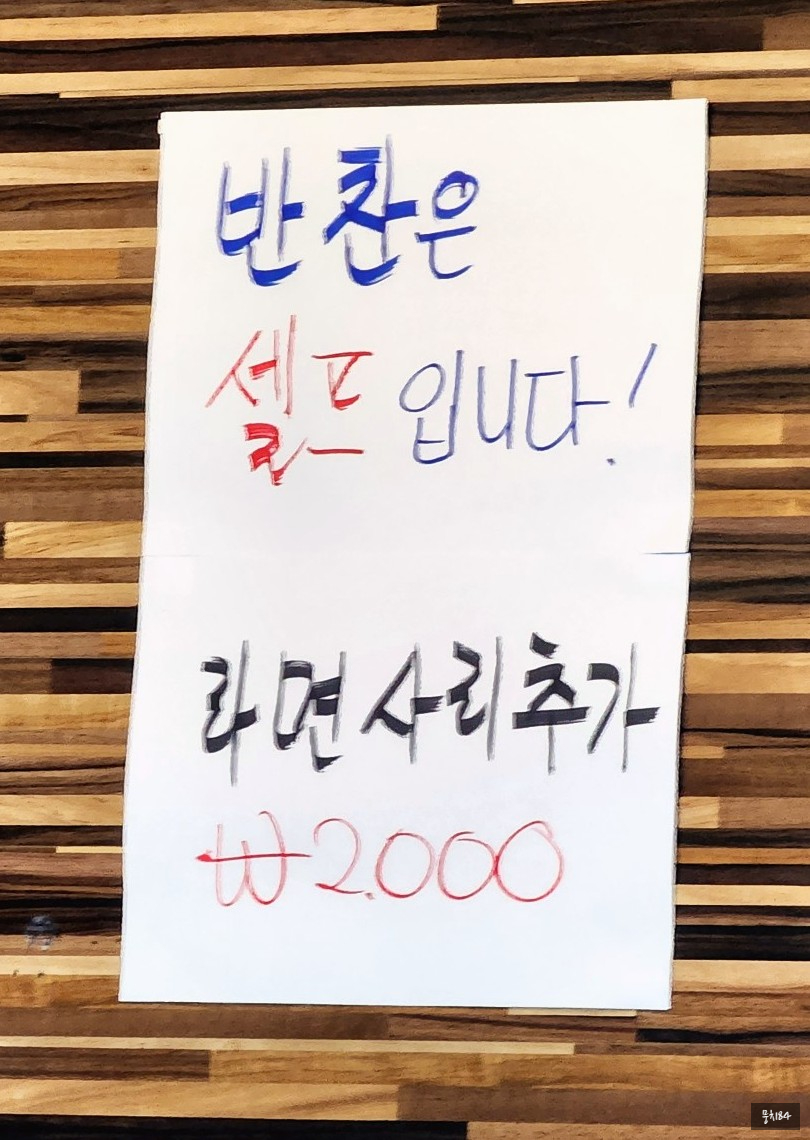 반찬은
셀프 입니다!
라면사리추가
₩2.000
뭉치84